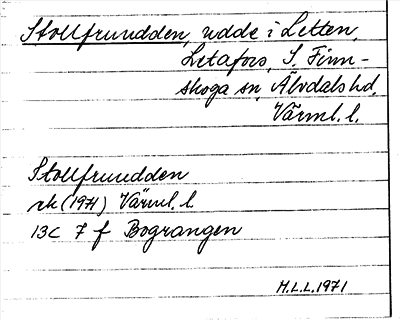 Stollfrundden, udde i Letten,
Letafors, S. Finn-
skoga sn, Älvdals hd,
Värml. l.
Stollfrundden
rk (1971) Värml. l.
13C 7 f Bograngen
M.L.L. 1971